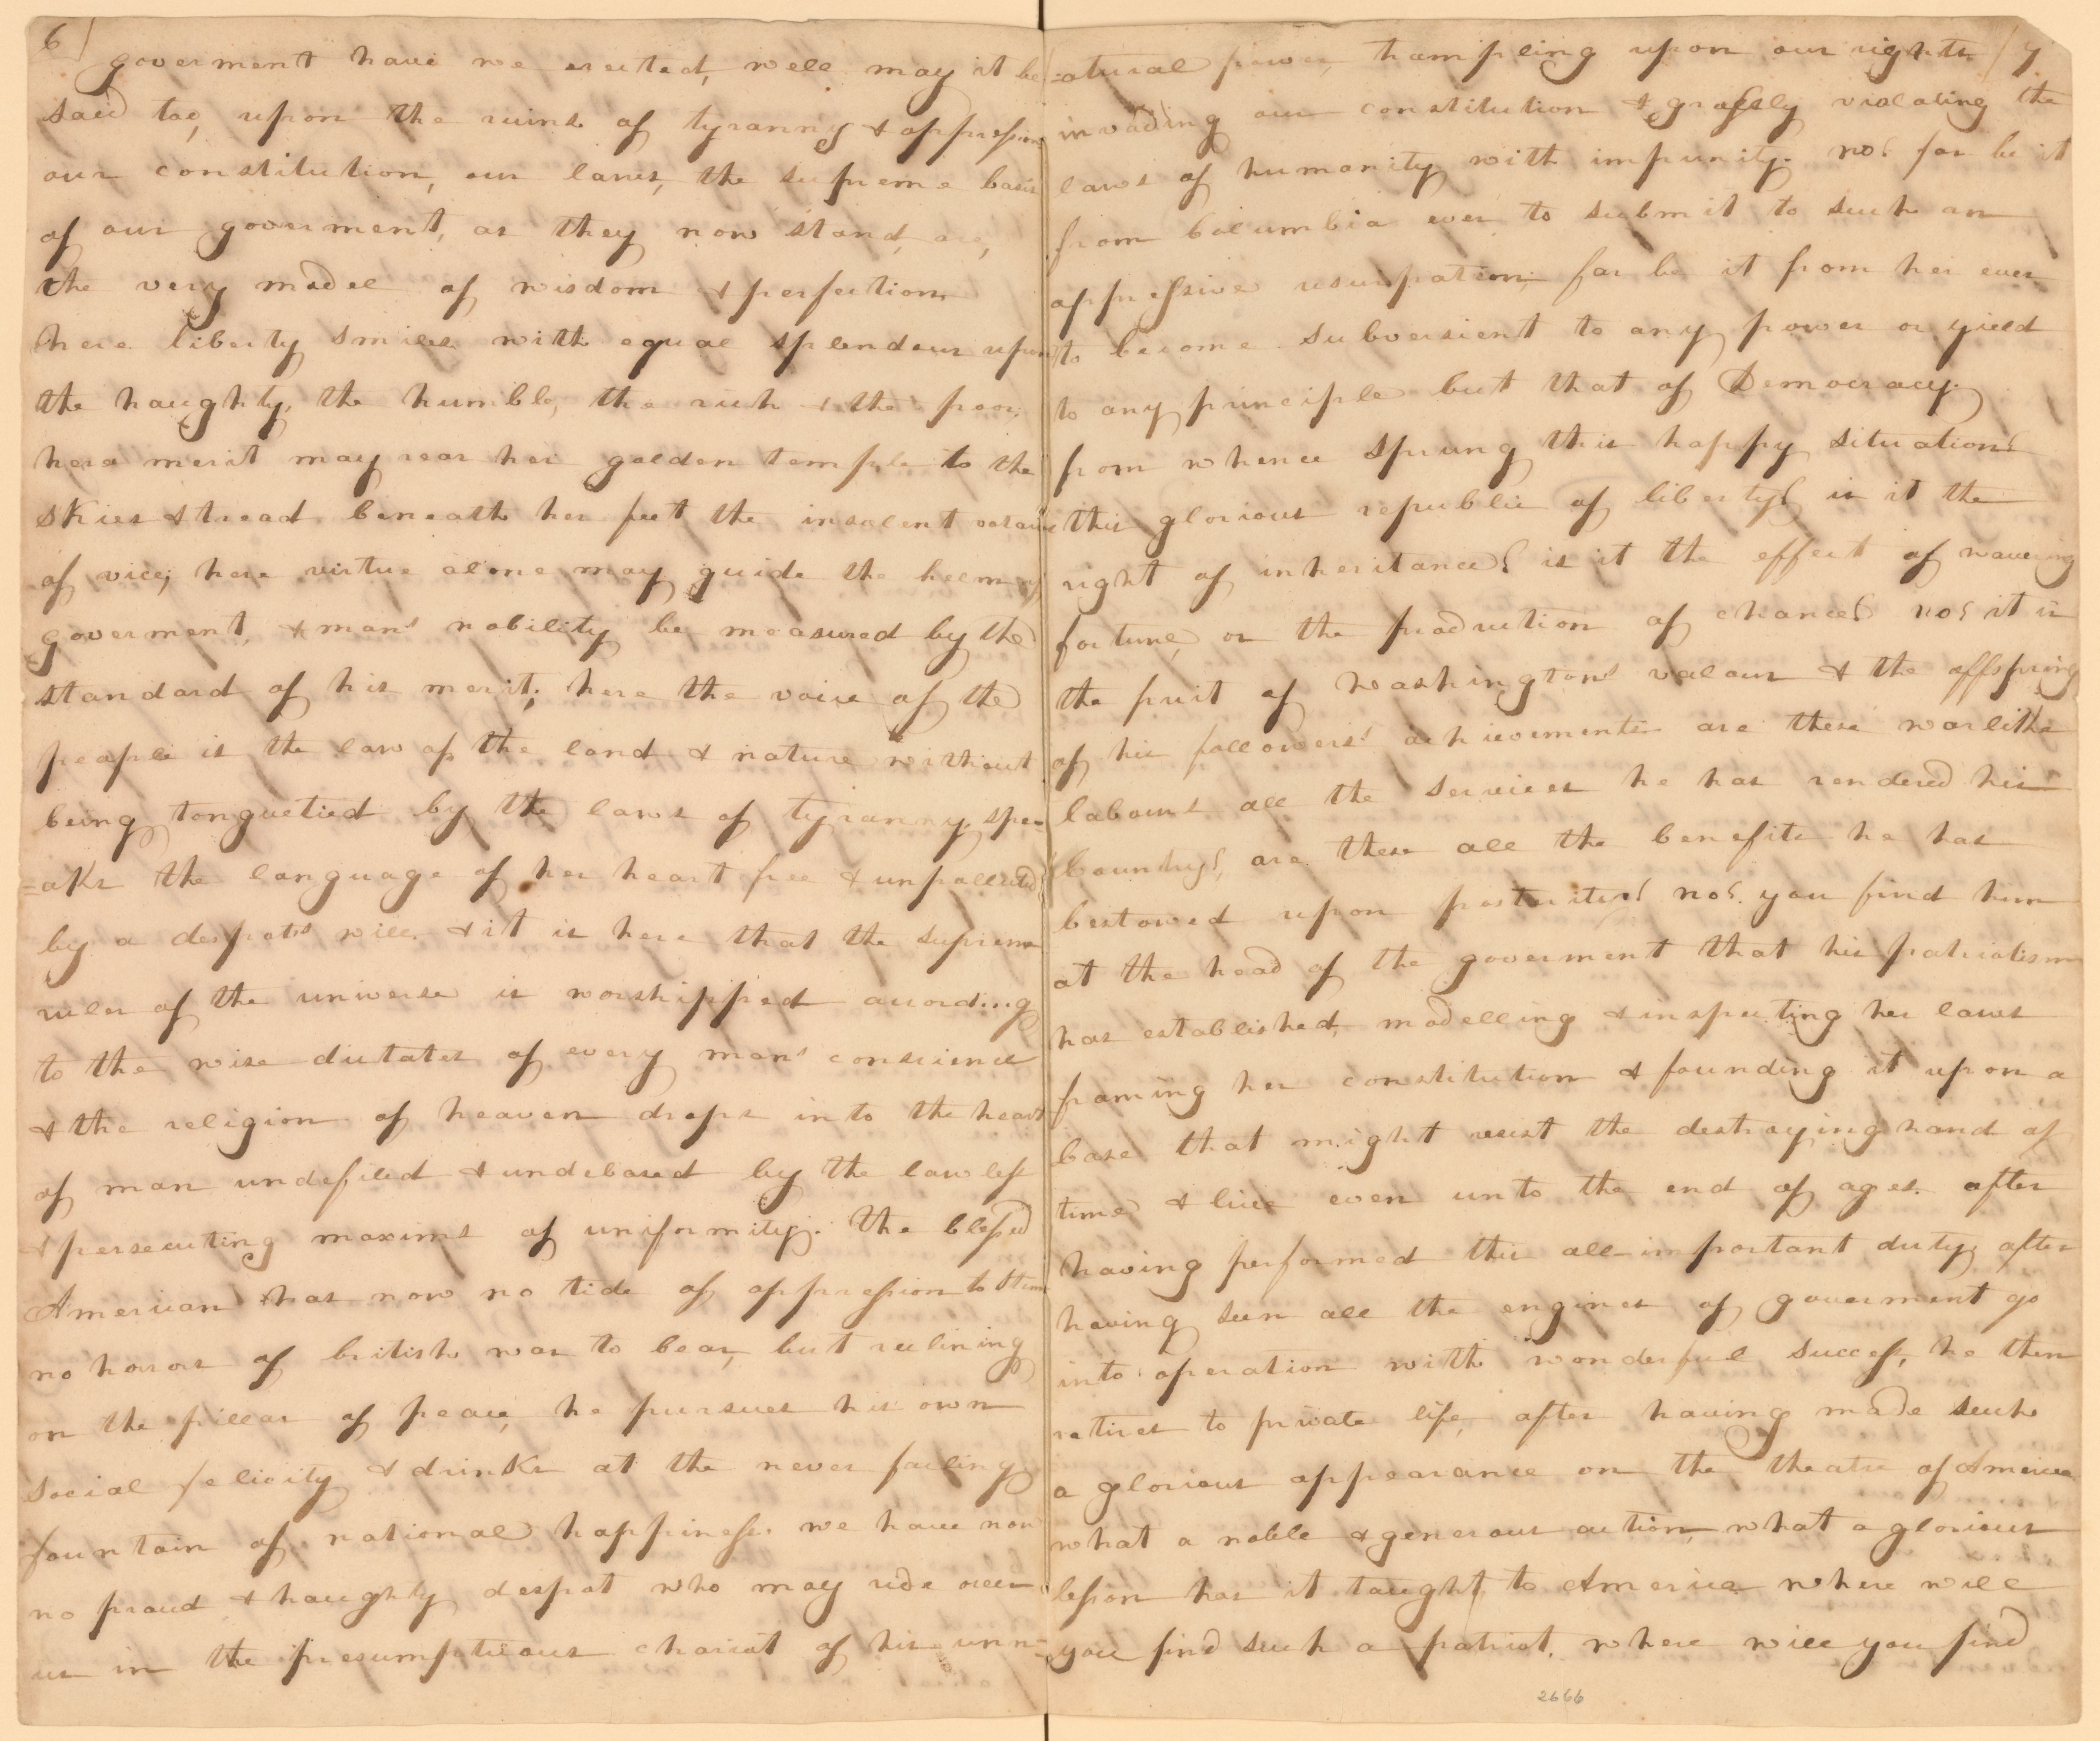 6/
goverment have we erected, well may it be
said too, upon the ruins of tyranny & oppression
our constitution, our laws, the supreme basis
of our goverment, as they now stand, are,
the very model of wisdom & perfection
here liberty smiles with equal splendour upon
the haughty, the humble, the rich & the poor,
here merit may rear her golden temple to the
skies & tread beneath her feet the insolent
of vice; here virtue alone may guide the helm of
goverment, & man's nobility be measured by the
standard of his merit; here the voice of the
people is the law of the land & nature without
being tonguetied by the laws of tyranny, spe-
=aks the language of her heart free & unpolluted
by a despots will & it is here that the supreme
ruler of the universe is worshipped according
to the wise dictates of every mans conscience
& the religion of heaven drops into the heart
of man undefiled & undebased by the lawless
& persecuting maxims of uniformity. The blessed
American has now no tide of oppression to stem
no horrors of british war to bear, but reclining
on the pillar of peace, he pursues his own
social felicity & drinks at the never failing
fountain of national happiness. we have now
no proud & haughty despot who may ride over
us in the presumptious chariot of his unn=
/7
=atural power, trampling upon our rights
invading our constitution & grossly violating the
laws of humanity with impunity. no! far be it
from Columbia ever to submit to such an
oppressive usurpation, far be it from her ever
to become subversient to any power or yield
to any principle but that of Democracy.
from whence sprung this happy situation?
this glorious republic of liberty? is it the
right of inheritance? is it the effect of wavering
fortune, or the production of chance? no! it is
the fruit of Washington's valour & the offspring
of his followers' achievements are these warlike
labours all the services he has rendered his
Country?, are these all the benefits he has
bestowed upon posterity? no!. you find him
at the head of the goverment that his patriotism
has established, modelling & inspecting her laws
framing her constitution & founding it upon a
base that might resist the destroying hand of
time & live even unto the end of ages. after
having performed this all-important duty, after
having seen all the engines of goverment go
into operation with wonderful success, he then
retires to private life, after having made such
a glorious appearance on the theatre of America
what a noble & generous action, what a glorious
lesson has it taught to America where will
you find such a patriot, where will you find
2666